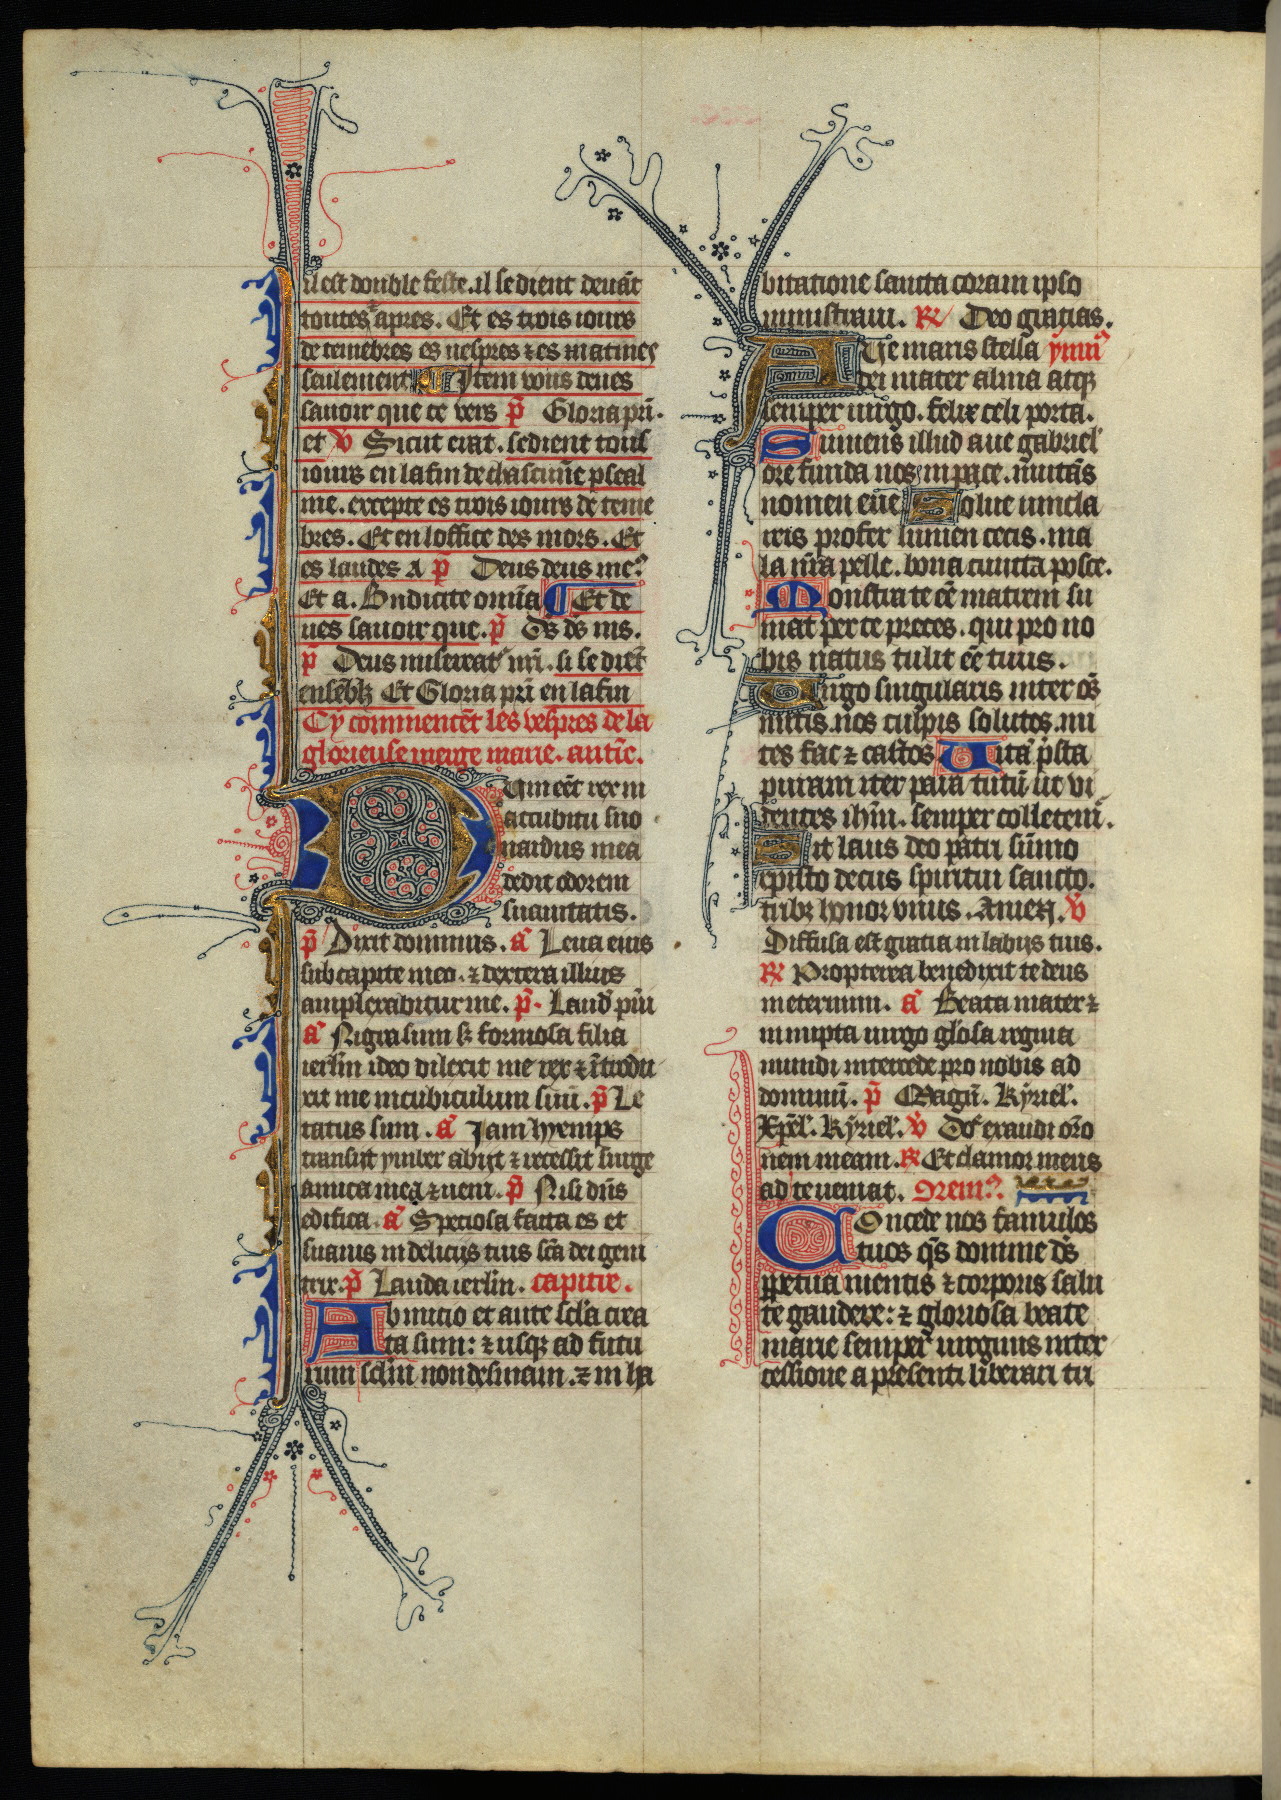 il est double feste. il se dient deuãt
toutes apres. Et es trois iours
de tenebres es uespres ⁊ es matines
seulement Item vous deues
sauoir que ce vers p̃ Gloria pr̃i.
et V̇ Sicut erat. se dient tous
iours en la fin de chascune pseal
me. excepte es trois iours de tene
bres. Et en loffice des mors. Et
es laudes A p̃ Deus deus me9
Et a. Bndicite om̃ia ¶ Et de
ues sauoir que. p̃ Ds̃ ds̃ ms.
p̃ Deus misereat᷑ nr̃i. si se diẽt
ensẽble Et Gloria pr̃i en la fin
Cy commencẽt les vespres de la
glorieuse uierge marie. antiẽ.
Dum eẽt rex in
accubitu suo
nardus mea
dedit odorem
suauitatis.
p̃ Dixit dominus. a᷑ Leua eius
sub capite meo. ⁊ dextera illius
amplexabitur me. p̃. Laud᷑ pũi
a᷑ Nigra sum sꝫ formosa filia
ierlm̃ ideo dilexit me rex ⁊ ĩtrodu
xit me in cubiculum suũ. p̃ Le
tatus sum. a᷑ Jam hyemps
transijt ymber abijt ⁊ recessit surge
amica mea ⁊ ueni. p̃ Nisi dñs
edifica. a᷑ Speciosa facta es et
suauis in delicijs tuis sc̃a dei geni
trix. p̃ Lauda ierlm̃. capitie.
Ab initio et ante sc̃la crea
ta sum: ⁊ usqꝫ ad futu
rum sc̃lm non desinam. ⁊ in ha
bitatione sancta coram ipso
ministraui. R̸ Deo gracias.
Aue maris stella ymñ
dei mater alma atqꝫ
semper uirgo. felix celi porta.
Sumens illud aue gabriel᷑
ore funda nos in pace. mutãs
nomen eue Solue uincla
reis profer lumen cecis. ma
la nr̃a pelle. bona cuncta posce.
Monstra te eẽ matrem su
mat per te preces. qui pro no
bis natus tulit eẽ tuus.
Uirgo singularis inter oẽs
mitis. nos culpis solutos. mi
tes fac ⁊ castos Uitã p̃sta
puram iter para tutũ ut vi
dentes ihm̃. semper colletem᷑.
Sit laus deo patri sũmo
xpisto decus spiritui sancto.
tribꝫ honor vnus. Amen. V̇
Diffusa est gratia in labijs tuis.
R̸ Propterea benedixit te deus
in eternum. a᷑ Beata mater ⁊
innupta uirgo glosa regina
mundi intercede pro nobis ad
dominũ. p̃ Magñ. Kyriel᷑.
Xpel᷑. Kyriel᷑. V̇ Dñe exaudi orõ
nem meam. R̸ Et clamor meus
ad te ueniat. Orem9.
Concede nos famulos
tuos q̃s domine ds̃
ꝑpetua mentis ⁊ corporis salu
te gaudere: ⁊ gloriosa beate
marie semper uirginis inter
cessione a presenti liberari tri